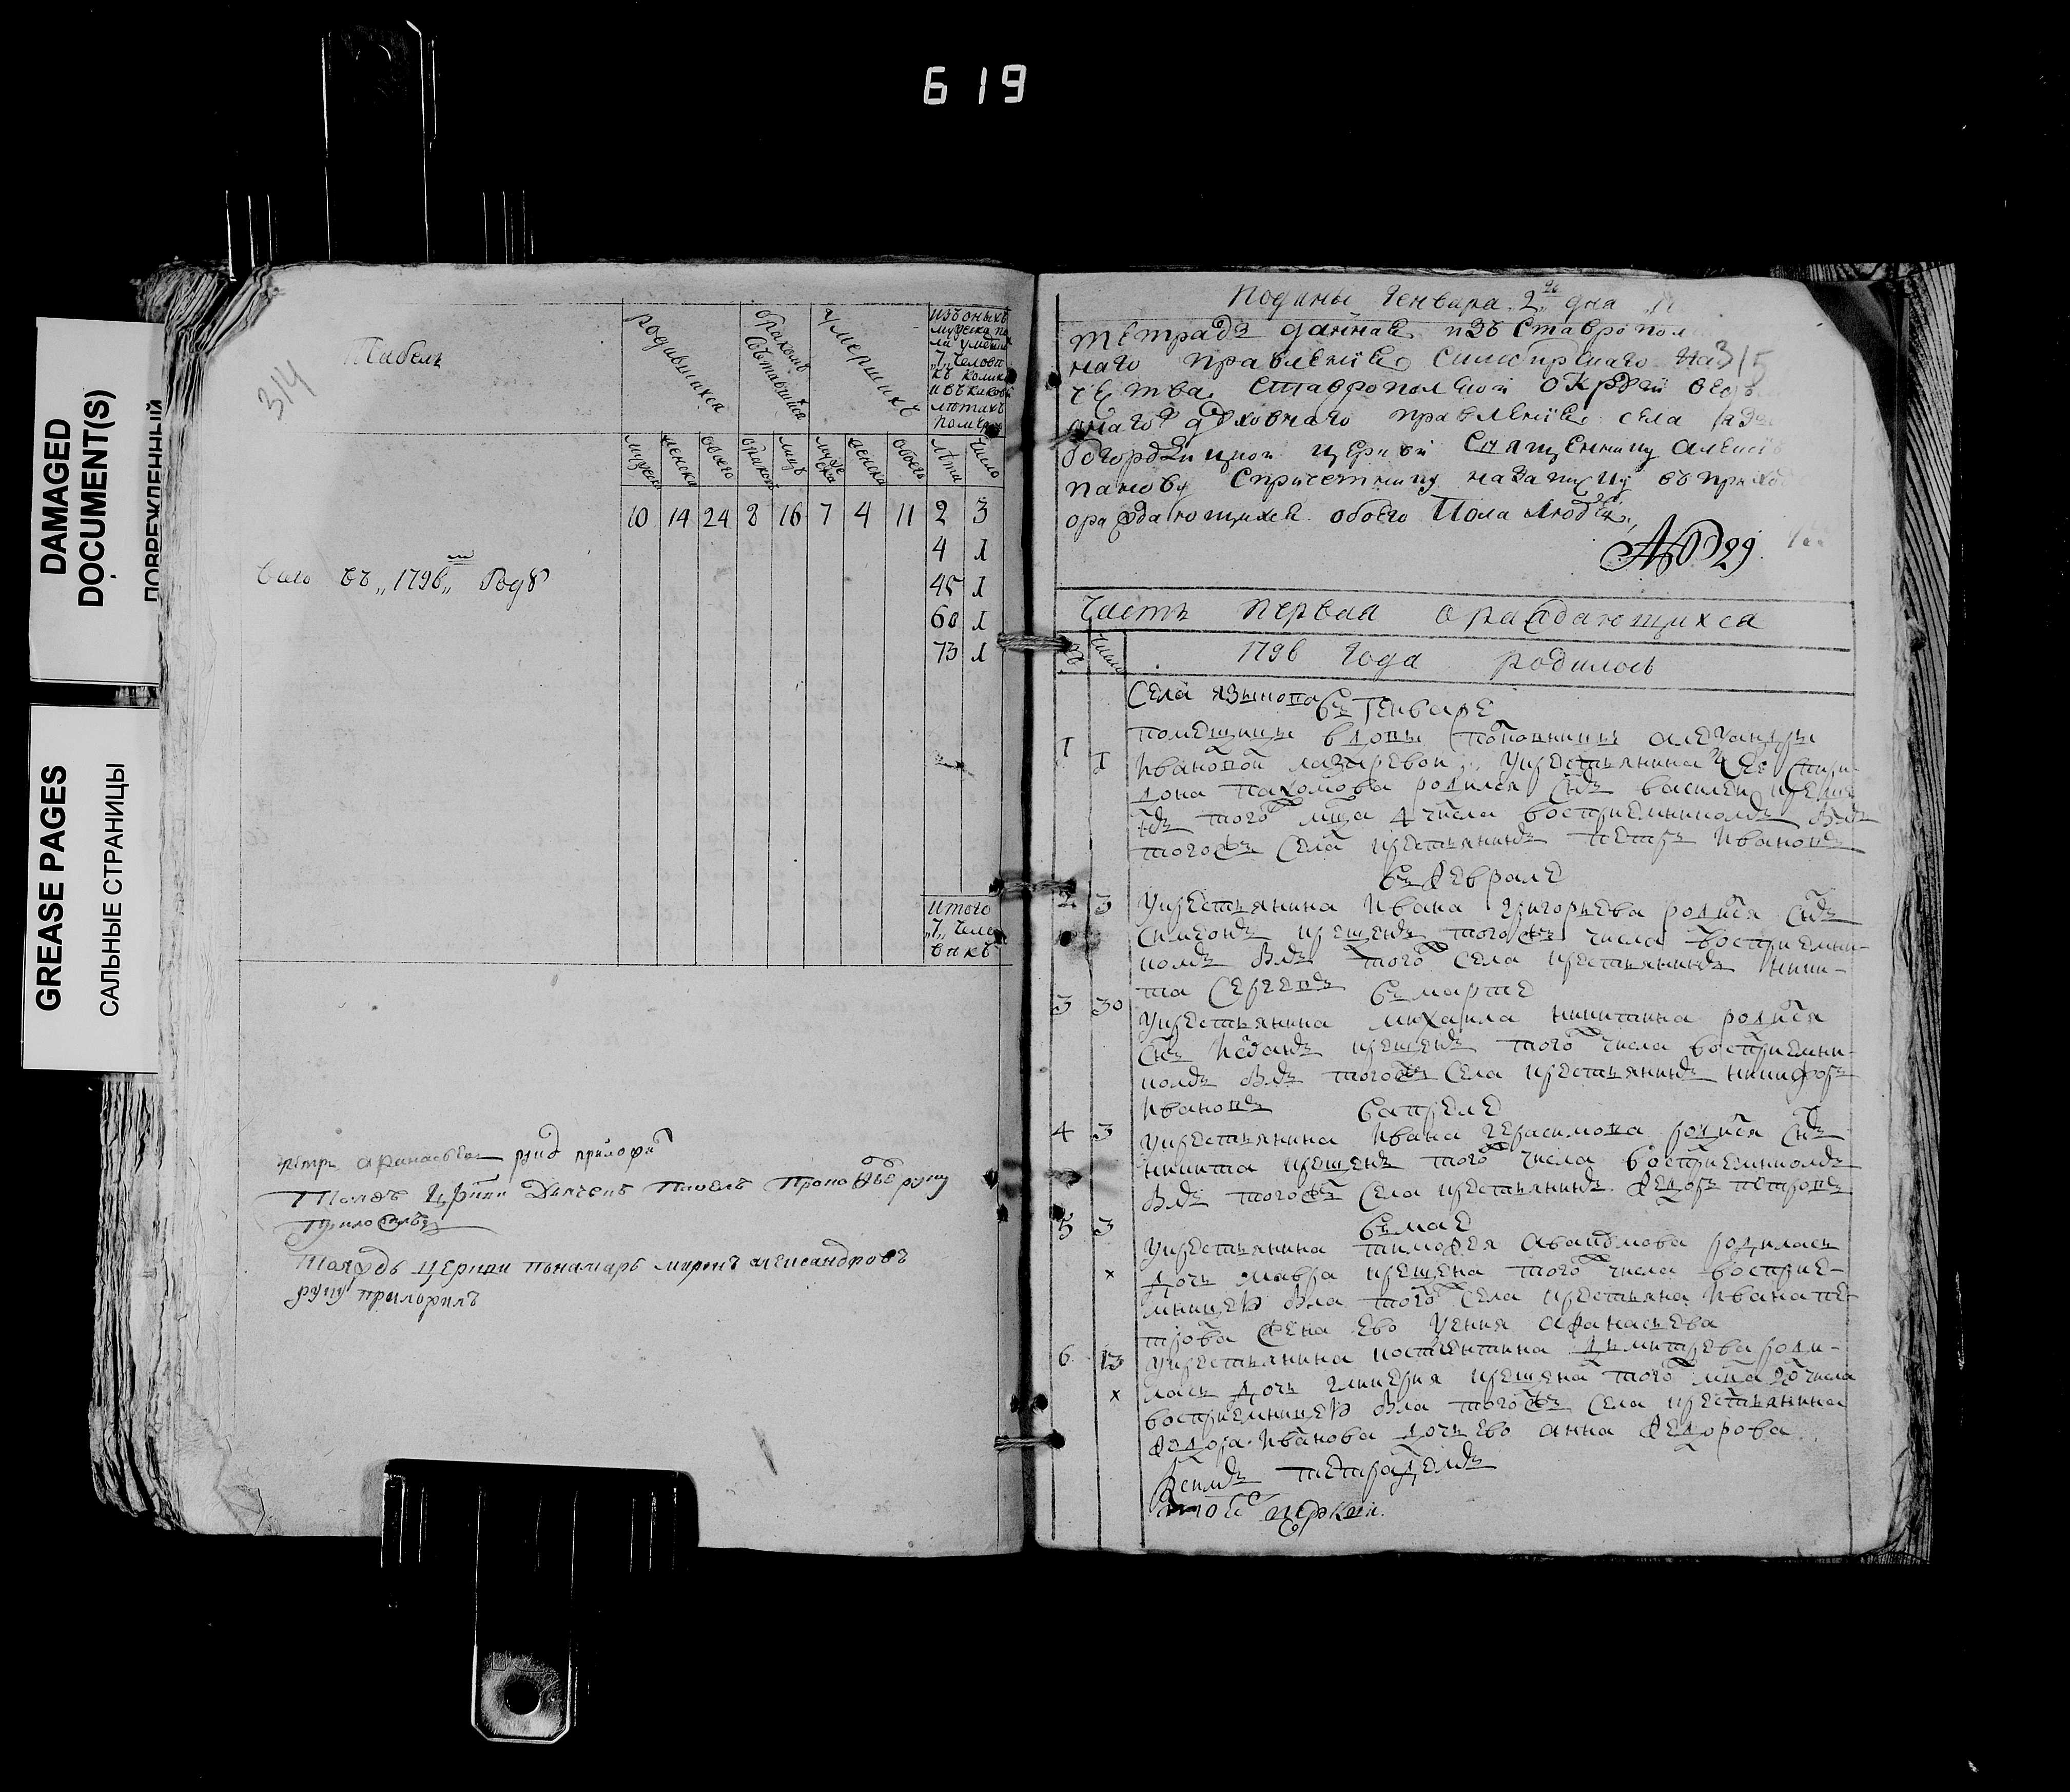 619
DAMAGED
DOCUMENT(S)
ПОВРЕЖДЕННЫЙ
GREASE PAGES
САЛЬНЫЕ СТРАНИЦЫ
314
Табель
родившихся
бракомъ
умершихъ
изъ оныхъ
мужска по
ла умерш
7 человѣ
къ колик
и въ каков
лѣтахъ
померли
мужеска
женска
обоего
браков
лицъ
муже
ска
женска
обоего
лѣта
число
10 14 24 8 16 7 4 11 2 3
4 1
Всего въ „1796„ Годѣ
45 1
60 1
73 1
итого
„7„ чело
вѣкъ
петръ афанасьевъ руку приложи
Тояжъ церкви Дьячекъ Павелъ руку
приложилъ
Тояжъ церкви понамарь миронъ александровъ
руку приложилъ
Генваря 2 дня
тетрадь данная изъ Ставропол
наго правления симбирскаго на 315
чества ставрополской округи
духовнаго правления села
богородицкой церкви Священнику алексѣ
панову Спричетники назаписку въ приход
ораждающихся обоего Пола людех
№ 29
Часть первая ораждающихся
число
1796 года родилось
Села языкова въ Генваре
1 1 помещицы вдовы александры
Ивановой лазаревой у крестьянина ее Спири-
дона пахомова родился снъ василей креще
нъ того мца 4 числа восприемникомъ былъ
тогожъ села крестьянинъ петръ Ивановъ
въ Феврале
2 3 У крестьянина Ивана Григорьева родися снъ
симеонъ крещенъ тогожъ числа восприемни-
комъ былъ того села крестьянинъ ники-
та Сергеевъ въ марте
3 30 У крестьянина михаила никитина родися
снъ крещенъ того числа восприемни-
комъ былъ тогожъ Села крестьянинъ никифоръ
Ивановъ въ апреле
4 3 У крестьянина Ивана Герасимова родися снъ
никита крещенъ того числа восприемникомъ
былъ тогожъ Села крестьянинъ Федоръ петровъ
въ мае
5 3 У крестьянина тимофея родилась
х дочь мавра крещена того числа восприе-
мницею была того Села крестьяна Ивана пе-
трова жена ево афанасьева
6 13 У крестьянина костентина димитрева роди-
х лась дочь гликерия крещена того мца 20 числа
восприемницею была тогожъ Села крестьянина
Федора Иванова дочь ево анна Федорова
церкви